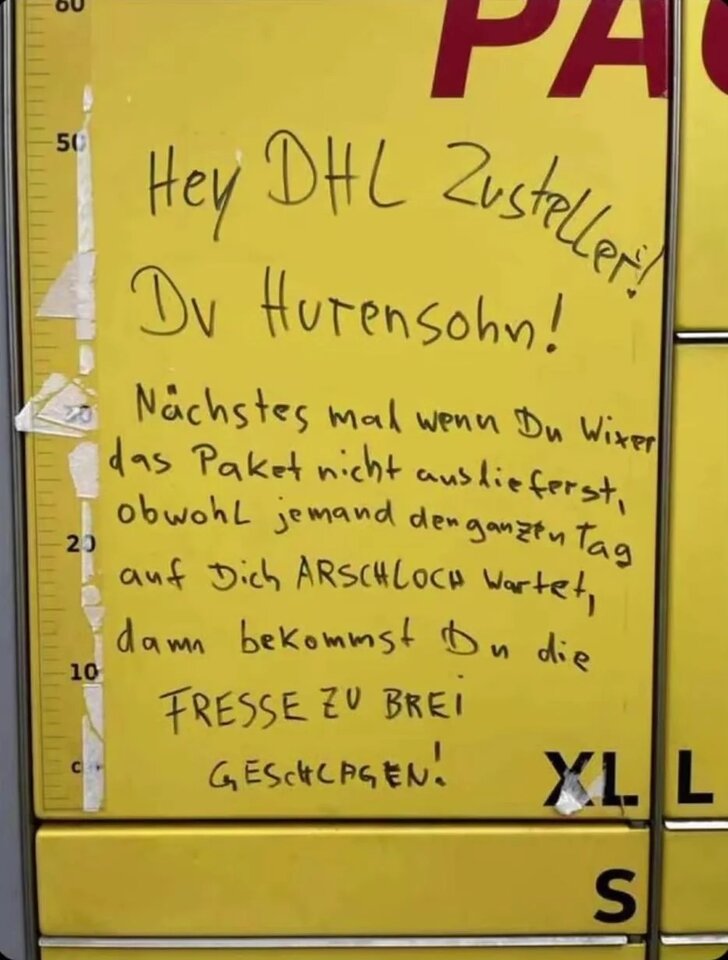 60
PA
50
Hey DHL Zusteller!
Du Hurensohn!
Nächstes mal wenn Du Wixer
30
das Paket nicht auslieferst,
obwohl jemand den ganzen Tag
20
auf Dich ARSCHLOCH wartet,
dann bekommst Du die
10
FRESSE ZU BREI
GESCHLAGEN!
c
XL
L
S